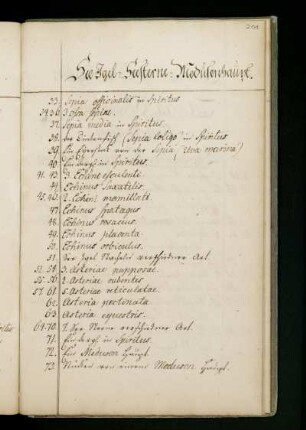 201
See Igel-Seesterne-Medusenhaupt.
33. Sepia officinalis in Spiritus
34.36. 3 Ossa sepiae.
37. Sepia media in Spiritus.
38. der Dintenfisch (Sepia loligo) in Spiritus
39. Ein Eyerstock von der Sepia (Uva marina)
40. in Spiritus.
41. 43. 3. Echini esculenti.
44. Echinus Saxatilis.
45.46. 2. Echini mamillati.
47. Echinus spatagus
48. Echinus rosaceus
49. Echinus placenta
50. Echinus orbiculus.
51. See Igel Stacheln verschiedner Art.
52.-54. 3. Asteriae papposae.
55.-56. 2. Asteriae rubentes
57.-61. 5. Asteriae reticulatae.
62. Asteria pectinata.
63. Asteria equestris.
64-70. 7. See Sterne verschiedner Art.
71. in Spiritus.
72. Ein Medusen Haupt.
73. von einem Medusen Haupt.